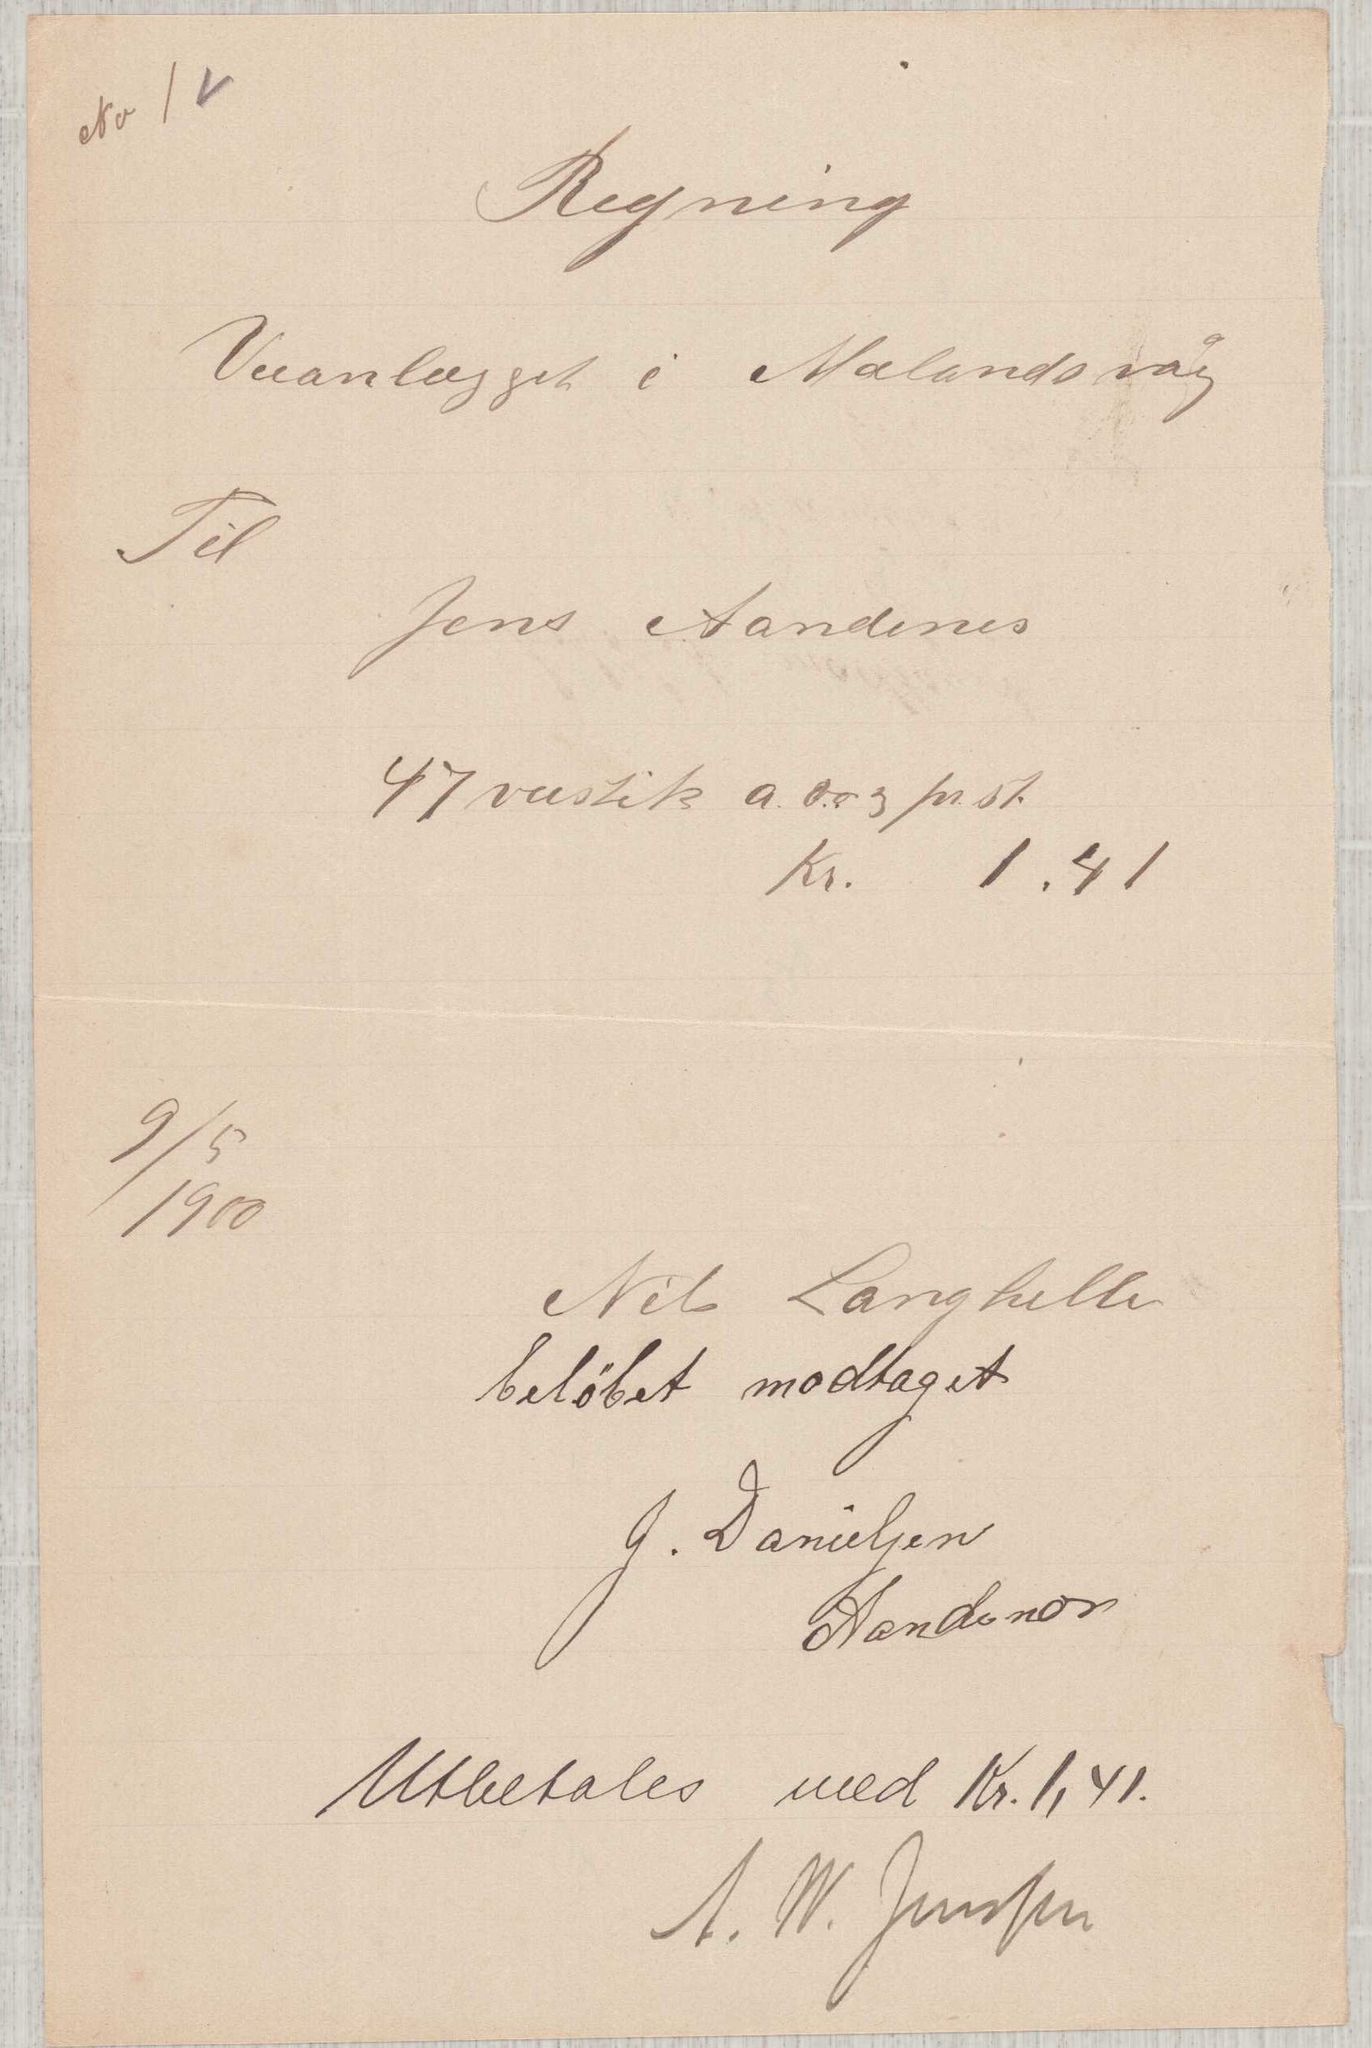 No 1 V
Regning
Veeanlægget i Mælandsvåg
Til
Jens Aandenes
47 veestik a 0.03 pr. st.
Kr. 1.41
9/5
1900
Nils Langhelle
belöbet modtaget
J. Danielsen
Aandenes
Utbetales med Kr. 1,41.
A. W. Jenssen